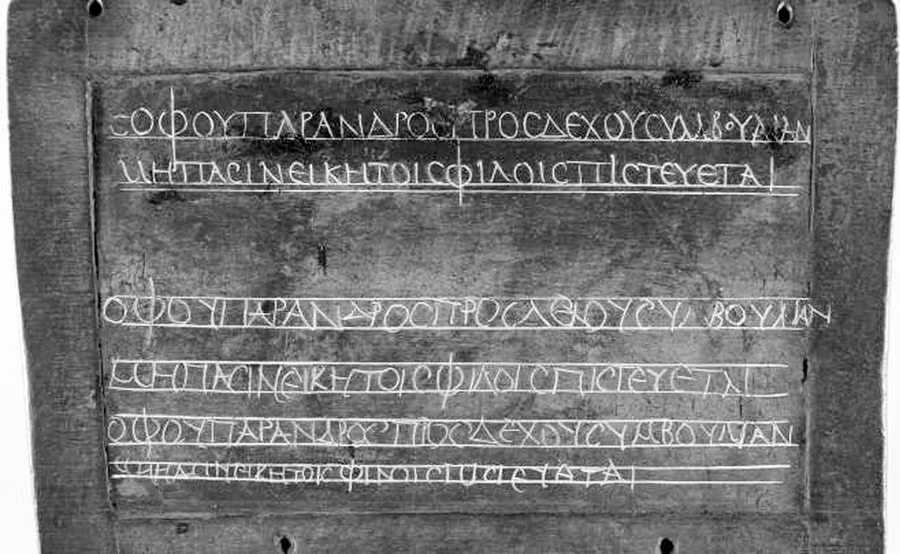 CΟΦΟΥΠΑΡΑΝΔΡΟCΠΡΟCΔΕΧΟΥCΥΜΒΟΥΛΙΑΝ
ΜΗΠΑCΙΝΕΙΚΗΤΟΙCΦΙΛΟΙCΠΙCΤΕΥΕΤΑΙ
ΟΦΟΥΠΑΡΑΝΔΡΟCΠΡΟCΔΕΧΟΥCΥΜΒΟΥΛΙΑΝ
ΜΗΠΑCΙΝΕΙΚΗΤΟΙCΦΙΛΟΙCΠΙCΤΕΥΕΤΑΙ
ΟΦΟΥΠΑΡΑΝΔΡΟCΠΡΟCΔΕΧΟΥCΥΜΒΟΥΛΙΑΝ
ΜΗΠΑCΙΝΕΙΚΗΤΟΙCΦΙΛΟΙCΠΙCΤΕΥΑΤΑΙ